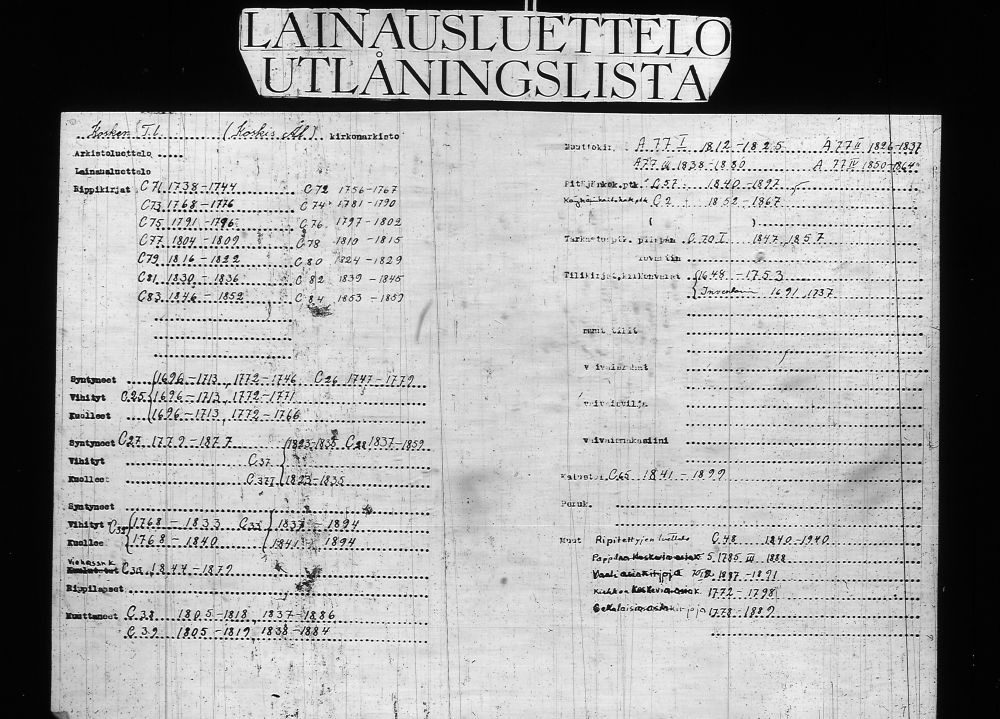 LAINAUSLUETTELO
UTLÅNINGSLISTA
Kosken T.l. (Koskis Ål) kirkonarkisto
Arkistoluettelo
Lainausluettelo
Rippikirjat C 71 1738-1744 C 72 1756-1767
C 73 1768-1776 C 74 1781-1790
C 75 1791-1796 C 76 1797-1802
C 77 1804-1809 C 78 1810-1815
C 79 1816-1822 C 80 1824-1829
C 81 1830-1836 C 82 1839-1845
C 83 1846-1852 C 84 1853-1859
Syntyneet 1696-1713, 1772-1746 C 26 1747-1779
Vihityt C 25 1696-1713, 1772-1771
Kuolleet 1696-1713, 1772-1766
Syntyneet C 27 1779-1877 1823-1835 C 28 1837-1859
Vihityt C 37
Kuolleet C 37I 1823-1835
Syntyneet
Vihityt C 33 1768-1833 C 35 1837-1894
Kuollee 1768-1840 1841-1894
1844-1879
Rippilapset
Muuttaneet C 38 1805-1818, 1837-1886
C 39 1805-1819, 1838-1884
Muuttokir. A 77 I 1812-1825 A 77 II 1826-1837
A 77 III 1838-1880 A 77 IV 1850-1864
Pitäjänkok.ptk. C 57 1840-1897
C 2 1852-1867
( )
Tarkastusptk. piispan C 70 I 1847, 1857
rovastin
Tilikirjat, kirkonvarat 1648-1753
Inventarie 1691, 1737
muut tilit
vaivaishuoneet
vaivaisvilja
vaivaismakasiini
Kalustol. C 65 1841-1899
Peruk.
Muut Ripitettyjen luettelo C 48 1840-1940
5, 1785 III, 1888
1887-1891
Kirkkoa koskevia asiak. 1772-1798
Sekalaisia asiakirjoja 1778-1889